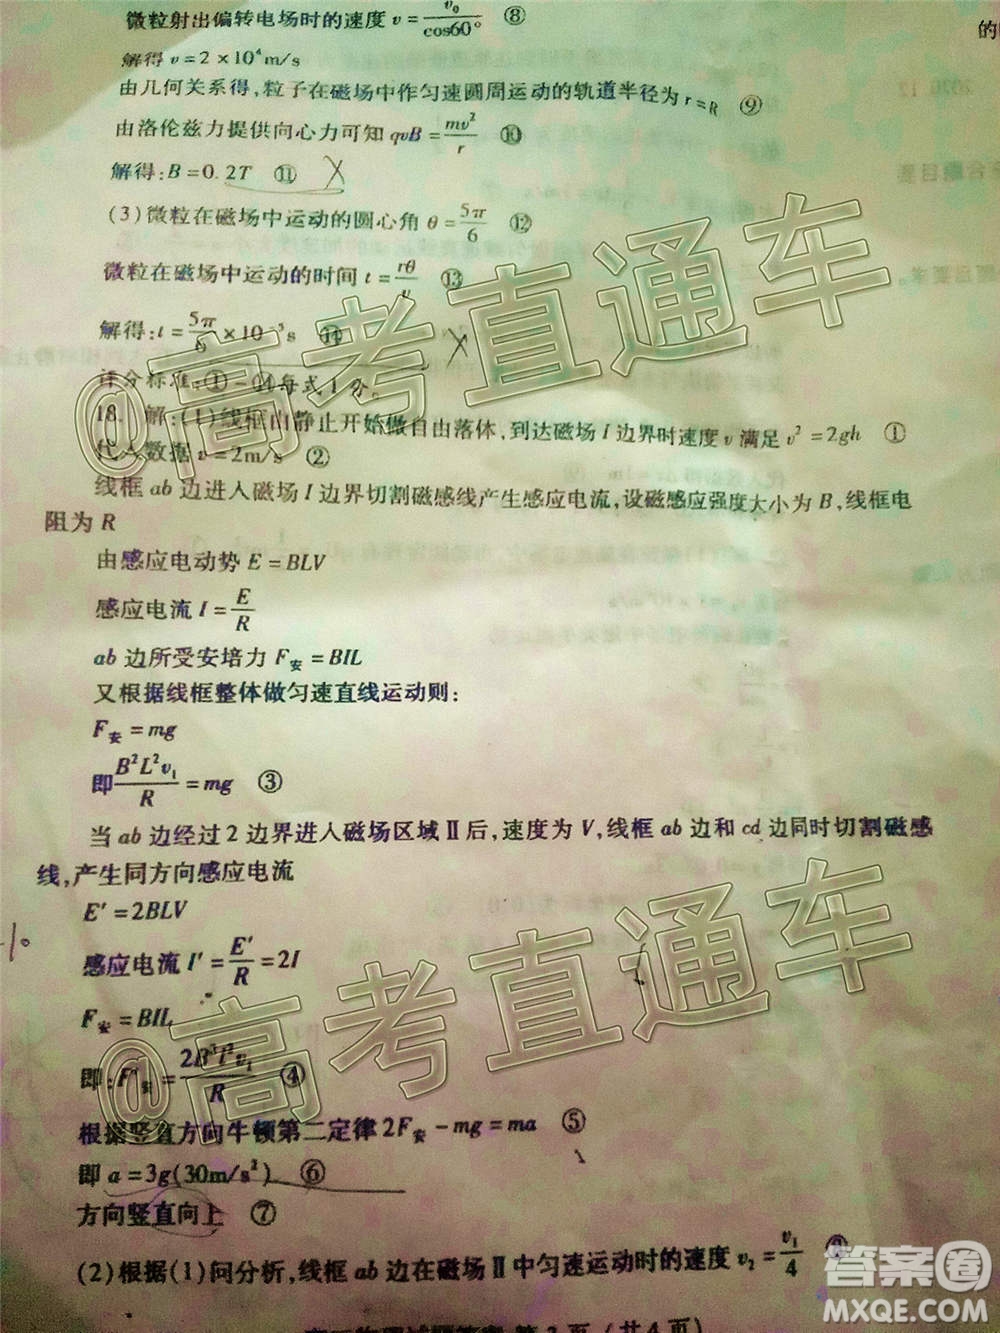 微粒射出偏转电场时的速度 v=v₀/cos60° ⑧
解得 v=2×10⁴m/s
由几何关系得,粒子在磁场中作匀速圆周运动的轨道半径为 r=R ⑨
由洛伦兹力提供向心力可知 qvB=mv²/r ⑩
解得:B=0.2T ⑪
(3)微粒在磁场中运动的圆心角 θ=5π/6 ⑫
微粒在磁场中运动的时间 t=rθ/v ⑬
解得:t=5π/ ×10⁻⁵s ⑭
评分标准:①-⑭每式1分。
18. 解:(1)线框由静止开始做自由落体,到达磁场 I 边界时速度 v 满足 v²=2gh ①
代入数据 v=2m/s ②
线框 ab 边进入磁场 I 边界切割磁感线产生感应电流,设磁感应强度大小为 B,线框电
阻为 R
由感应电动势 E=BLV
感应电流 I=E/R
ab 边所受安培力 F安=BIL
又根据线框整体做匀速直线运动则:
F安=mg
即 B²L²v₁/R=mg ③
当 ab 边经过 2 边界进入磁场区域Ⅱ后,速度为 V,线框 ab 边和 cd 边同时切割磁感
线,产生同方向感应电流
E′=2BLV
感应电流 I′=E′/R=2I
F安=BIL
即:F′安= v₁/R ④
根据竖直方向牛顿第二定律 2F安-mg=ma ⑤
即 a=3g(30m/s²) ⑥
方向竖直向上 ⑦
(2)根据(1)问分析,线框 ab 边在磁场Ⅱ中匀速运动时的速度 v₂=v₁/4
(共4页)
@高考直通车
@高考直通车
答案圈
MXQE.COM